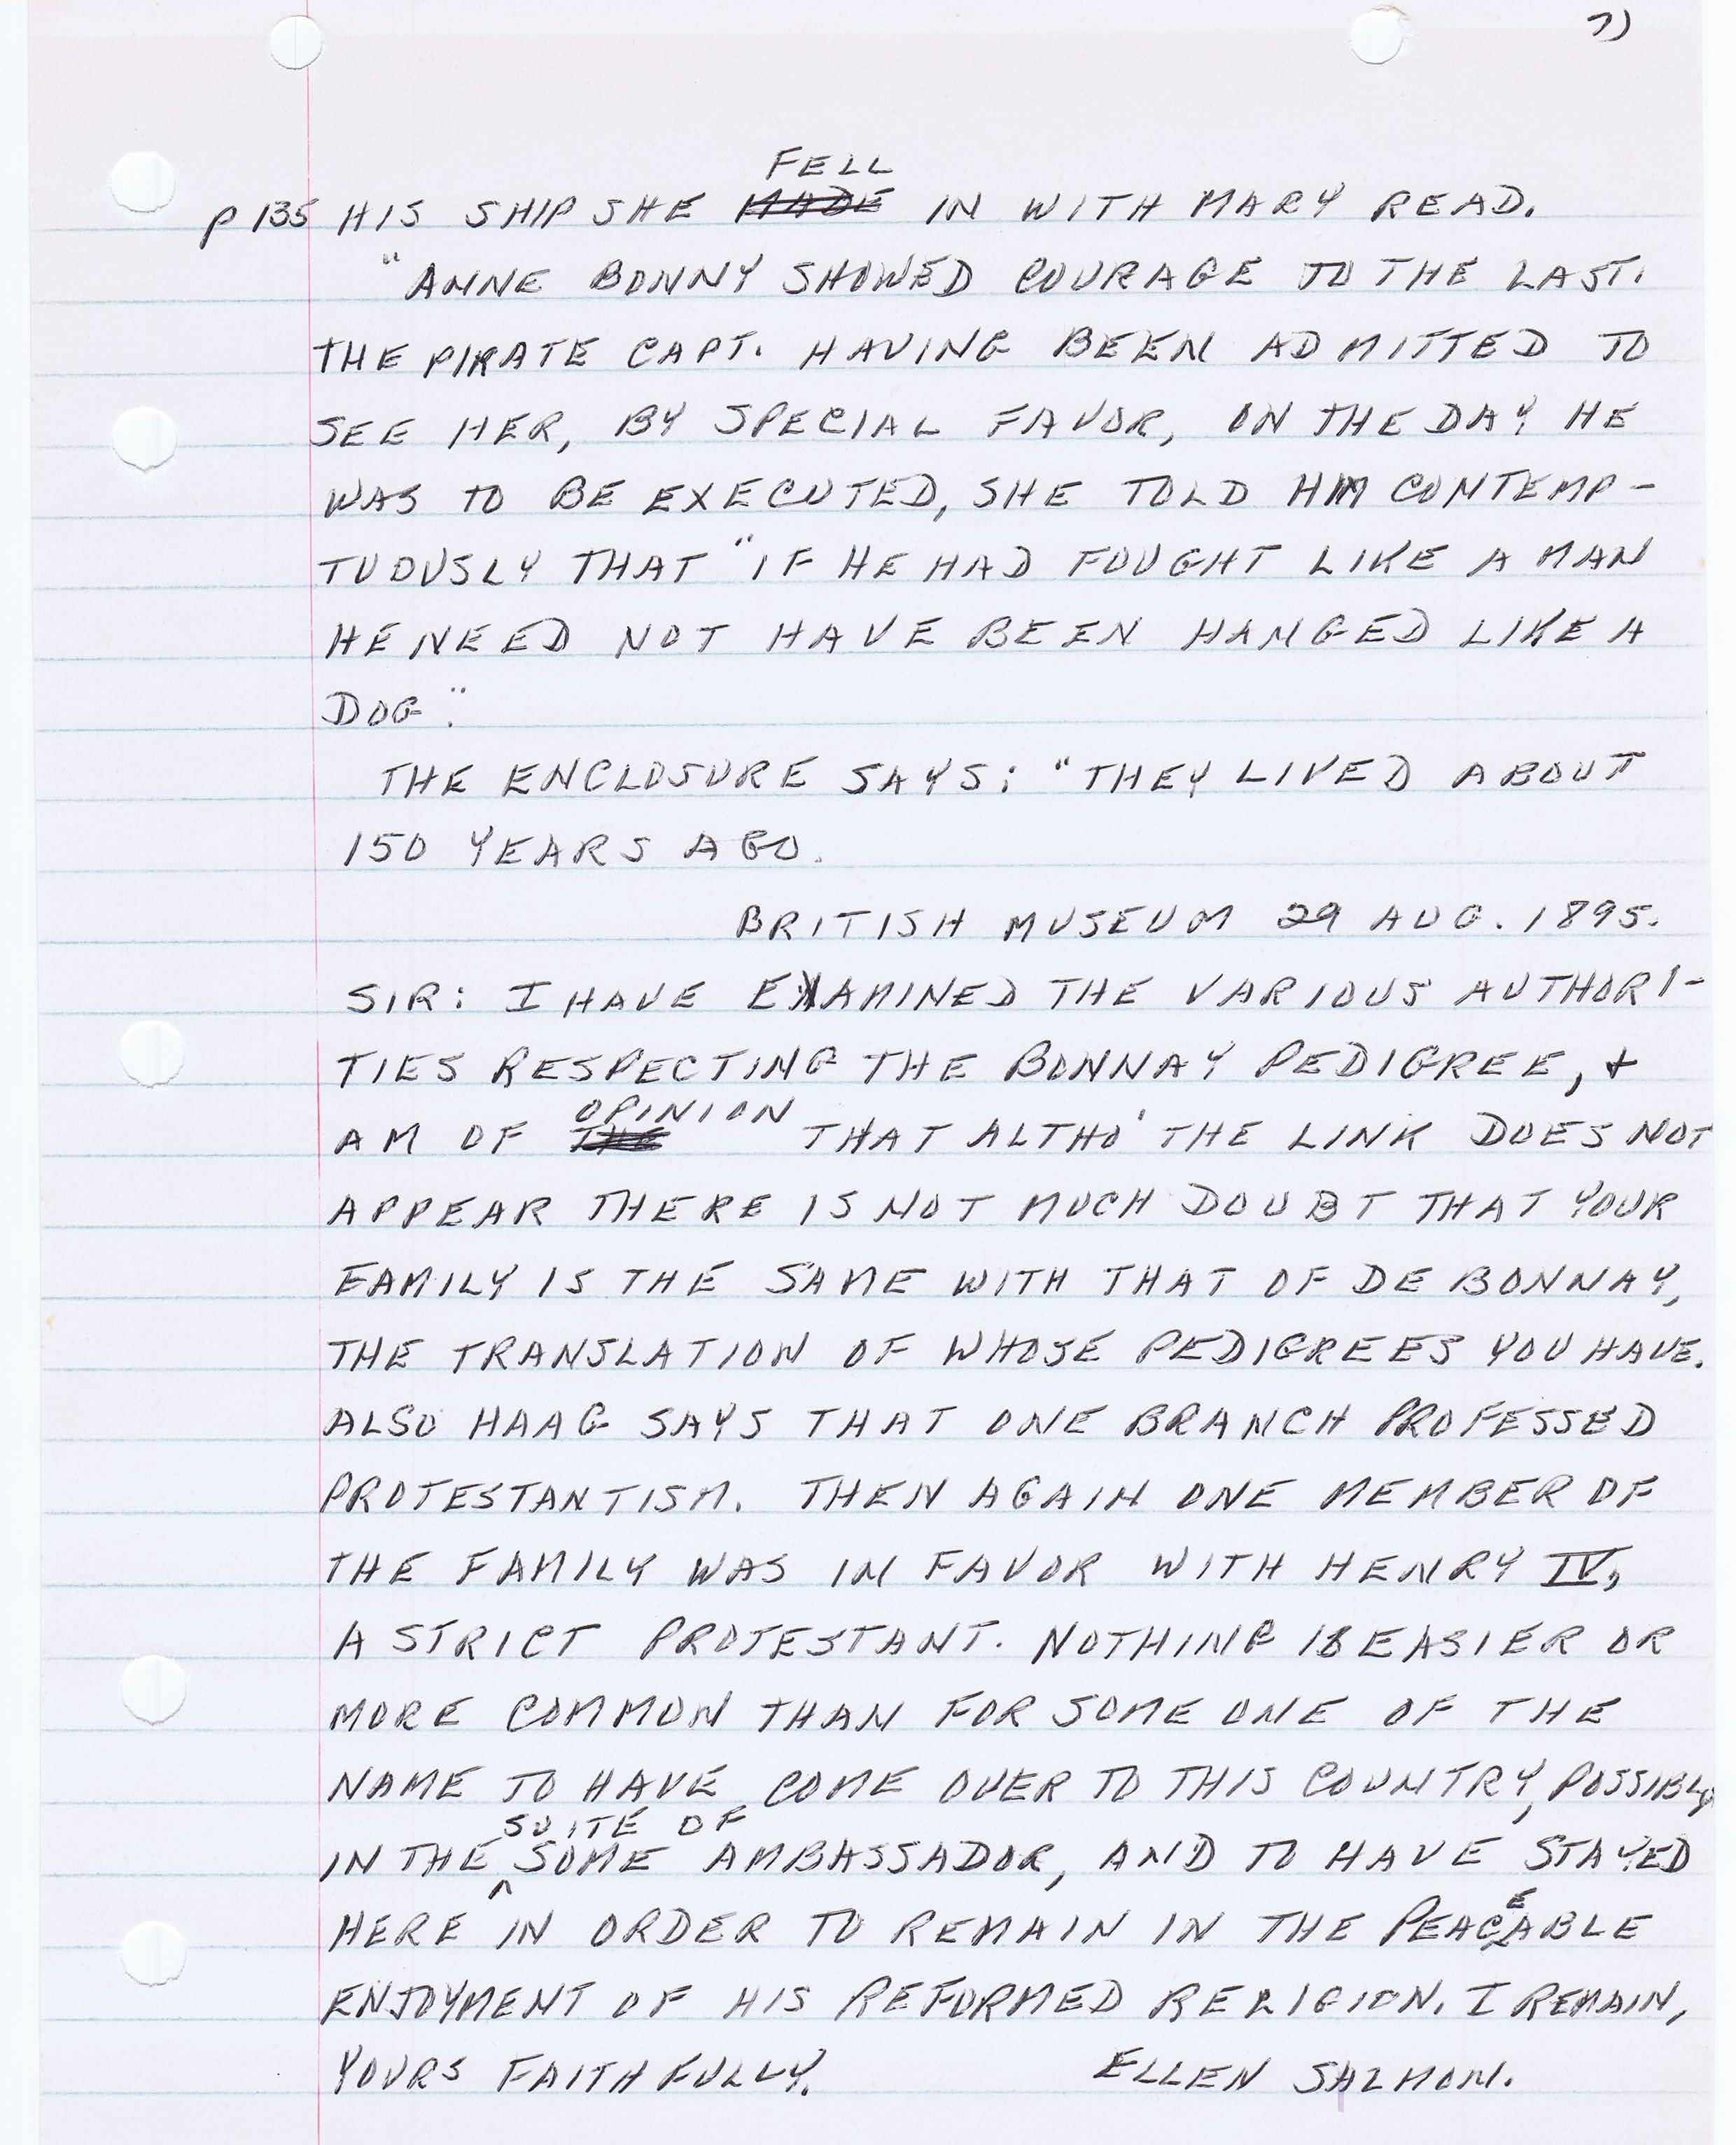 7)
FELL
p 135 HIS SHIP SHE MADE IN WITH MARY READ.
"ANNE BONNY SHOWED COURAGE TO THE LAST.
THE PIRATE CAPT. HAVING BEEN ADMITTED TO
SEE HER, BY SPECIAL FAVOR, ON THE DAY HE
WAS TO BE EXECUTED, SHE TOLD HIM CONTEMP-
TUOUSLY THAT "IF HE HAD FOUGHT LIKE A MAN
HE NEED NOT HAVE BEEN HANGED LIKE A
DOG."
THE ENCLOSURE SAYS: "THEY LIVED ABOUT
150 YEARS AGO.
BRITISH MUSEUM 29 AUG. 1895.
SIR: I HAVE EXAMINED THE VARIOUS AUTHORI-
TIES RESPECTING THE BONNAY PEDIGREE, +
OPINION
AM OF THE THAT ALTHO' THE LINK DOES NOT
APPEAR THERE IS NOT MUCH DOUBT THAT YOUR
FAMILY IS THE SAME WITH THAT OF DE BONNAY,
THE TRANSLATION OF WHOSE PEDIGREES YOU HAVE.
ALSO HAAG SAYS THAT ONE BRANCH PROFESSED
PROTESTANTISM. THEN AGAIN ONE MEMBER OF
THE FAMILY WAS IN FAVOR WITH HENRY IV,
A STRICT PROTESTANT. NOTHING IS EASIER OR
MORE COMMON THAN FOR SOME ONE OF THE
NAME TO HAVE COME OVER TO THIS COUNTRY, POSSIBLY
SUITE OF
IN THE ^ SOME AMBASSADOR, AND TO HAVE STAYED
HERE IN ORDER TO REMAIN IN THE PEACEABLE
ENJOYMENT OF HIS REFORMED RELIGION. I REMAIN,
YOURS FAITHFULLY. ELLEN SALMON.